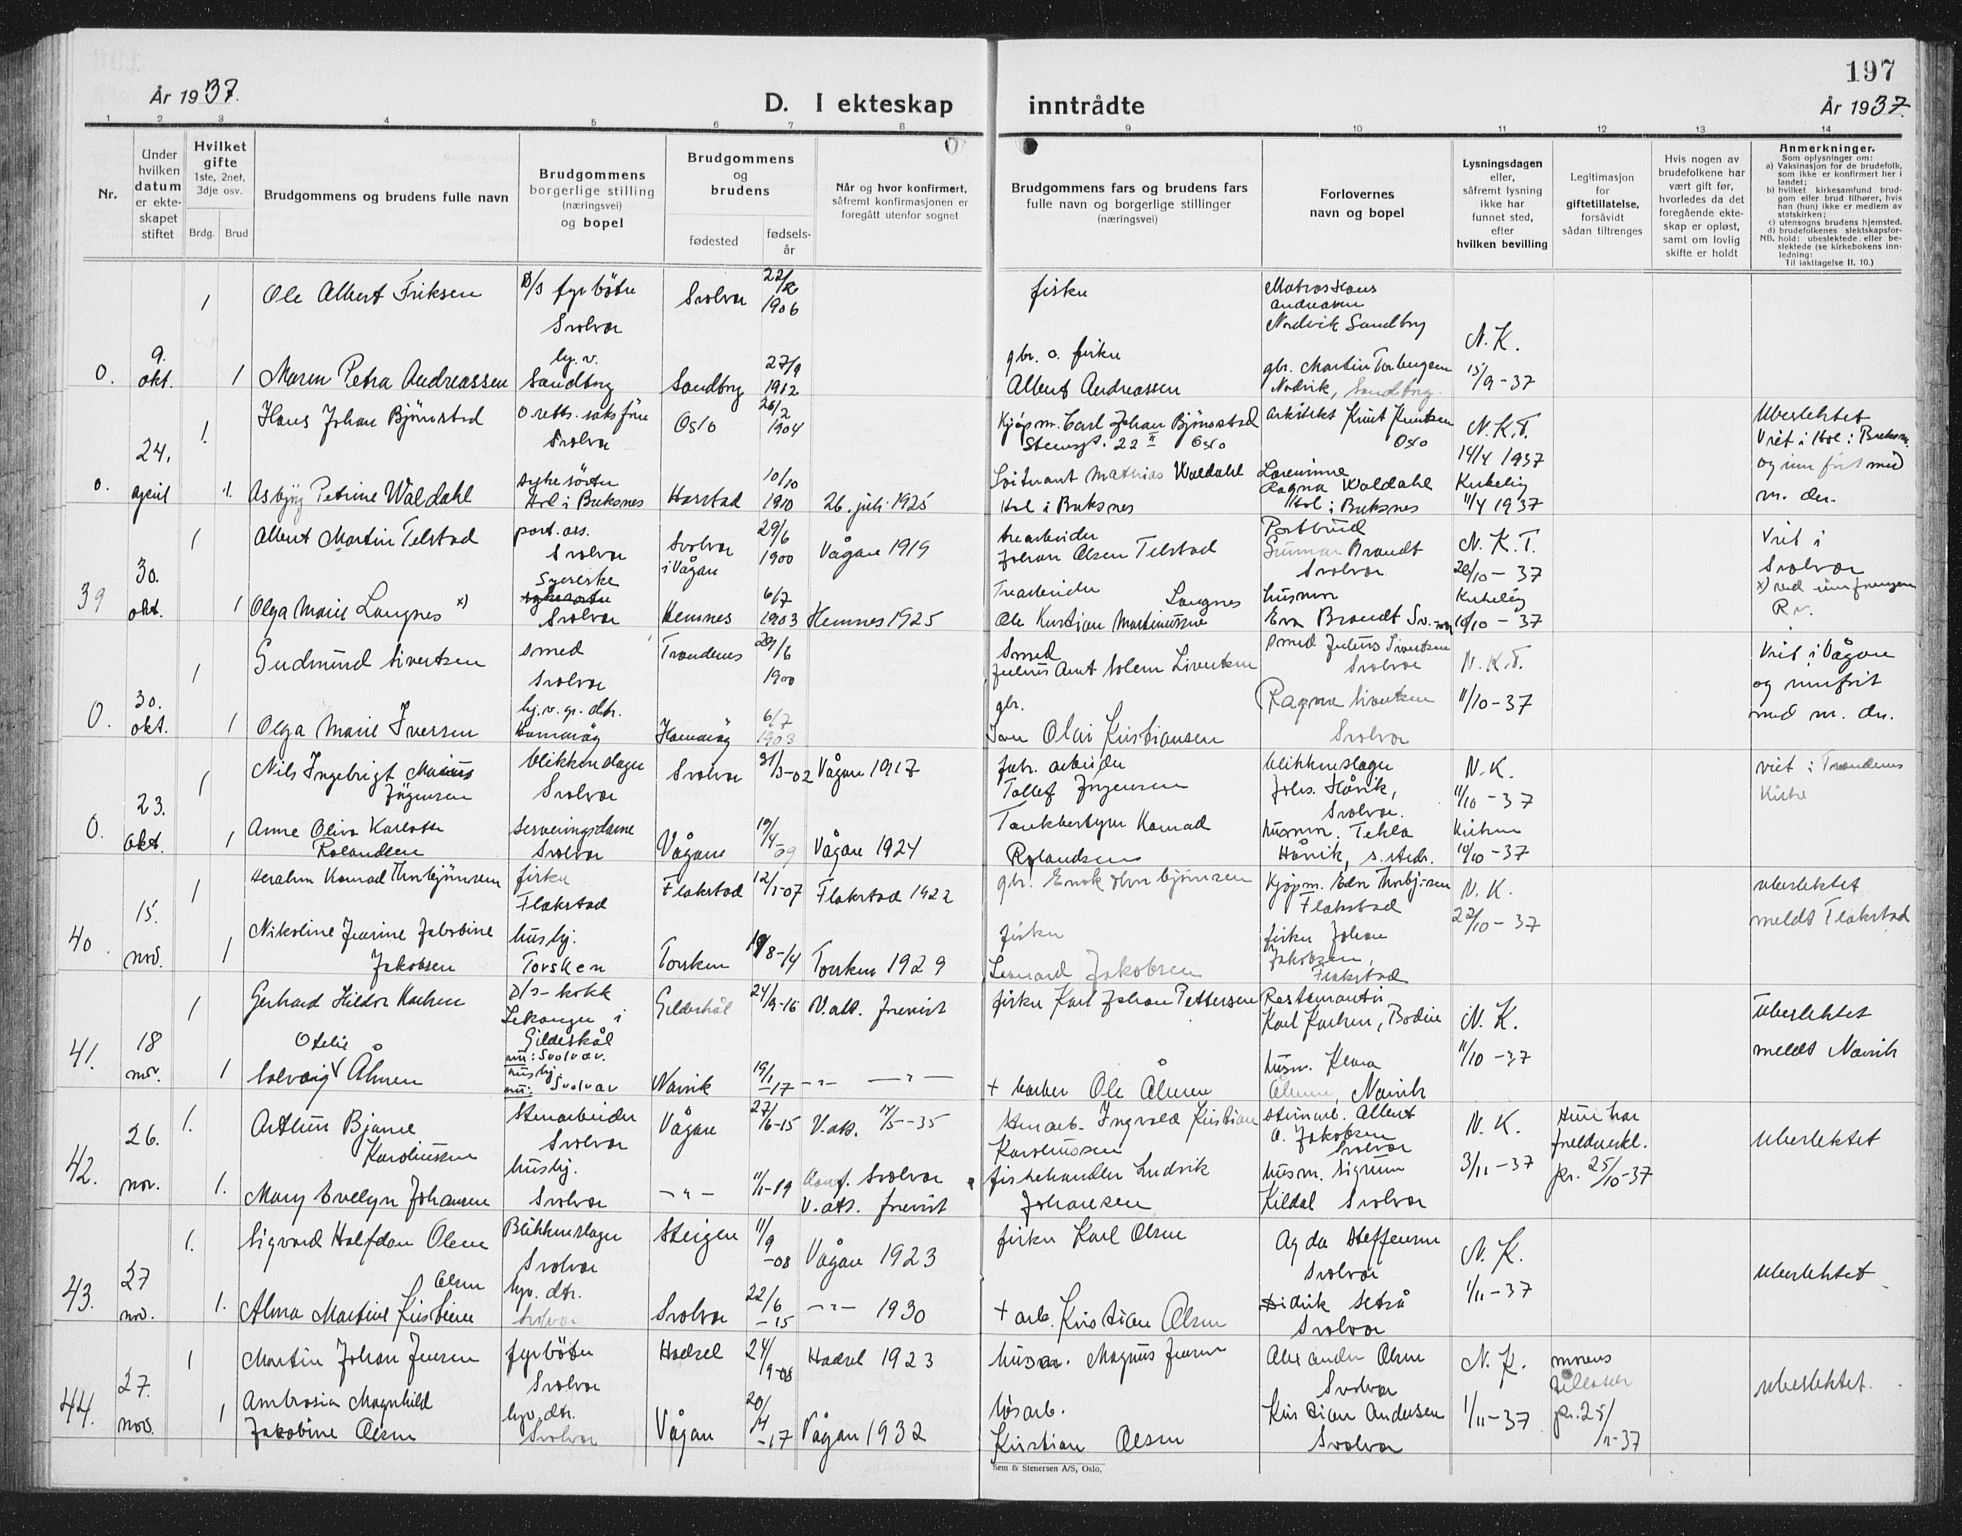 197
År 1937.
D. I ekteskap inntrådte
År 1937.
1 2 3 4 5 6 7 8 9 10 11 12 13 14
Nr.
Under hvilken datum er ekteskapet stiftet
Hvilket gifte
1ste, 2net, 3dje osv.
Brdg. Brud
Brudgommens og brudens fulle navn
Brudgommens borgerlige stilling (næringsvei) og bopel
Brudgommens og brudens
fødested
fødselsår
Når og hvor konfirmert, såfremt konfirmasjonen er foregått utenfor sognet
Brudgommens fars og brudens fars fulle navn og borgerlige stillinger (næringsvei)
Forlovernes navn og bopel
Lysningsdagen eller, såfremt lysning ikke har funnet sted, efter hvilken bevilling
Legitimasjon for giftetillatelse, forsåvidt sådan tiltrenges
Hvis nogen av brudefolkene har vært gift før, hvorledes da det foregående ekteskap er opløst, samt om lovlig skifte er holdt
Anmerkninger.
Som oplysninger om:
a) Vaksinasjon for de brudefolk, som ikke er konfirmert her i landet;
b) hvilket kirkesamfund brudgom eller brud tilhører, hvis han (hun) ikke er medlem av statskirken;
c) utensogns brudens hjemsted.
d) brudefolkenes slektskapsforhold: ubeslektede eller beslektede (se kirkebokens innledning:
NB.
Til iakttagelse II. 10.)
1 Ole Albert Eriksen D/S fyrbøter Svolvær Svolvær 22/2 1906 fisker Matros Hans Andreassen Nordvik Sandbrg N.K.
0. 9. okt. 1 Maren Petra Andreassen hj. v. Sandbrg Sandbrg 27/9 1912 gbr. o. fisker Albert Andreassen gbr. Martin Torbergsen Nodvik, Sandbrg. 15/9-37
1. Hans Johan Bjørnstad o.retts.saksfører Svolvær Oslo 26/2 1904 Kjøpm. Carl Johan Bjørnstad Stensgt. 22 II Oslo arkitekt Knut Knutsen Oslo N.K.T. 14/4 1937 Ubeslektet Viet i Hol i Buksn. og innført med m. der.
0. 24. april 1. Asbjørg Petrine Waldahl sykesøster Hol i Buksnes Harstad 10/10 1910 26. juli 1925 Løitnant Mathias Waldahl Hol i Buksnes Lærerinne Ragna Waldahl Hol i Buksnes Kirkelig 11/4 1937
1 Albert Martin Telstad port. ass. Svolvær Svolvær i Vågan 29/6 1900 Vågan 1919 trearbeider Johan Olsen Telstad Postbud Gunnar Brandt Svolvær N.K.T. 20/10-37 Viet i Svolvær x) ved innføringen R.v.
39 30. okt. 1 Olga Marie Langnes x) Syerske Svolvær Hemnes 6/7 1903 Hemnes 1925 Trearbeider Langnes Ole Kristian Martinussen husmor Eva Brandt Sv.vær Kirkelig 10/10-37
1 Gudmund Sivertsen smed Svolvær Trondenes 29/6 1900 Smed Julius Arnt Solem Sivertsen smed Julius Sivertsen Svolvær N.K.T. Viet i Vågan og innført med m. der.
0. 30. okt. 1 Olga Marie Iversen hj. v. gr. dtr. Hamarøy Hamarøy 6/7 1903 gbr. Olai Kristiansen Ragna Sivertsen Svolvær 11/10-37
1 Nils Ingebrigt Marius Jørgensen blikkenslager Svolvær Svolvær 31/3-02 Vågan 1917 fabr. arbeider Tollef Jørgensen blikkenslager Johs. Håvik, Svolvær. N.K. 11/10-37 viet i Trondenes Kirke
0. 23. okt. 1 Anne Oliva Karlotte Rolandsen serveringsdame Svolvær Vågan 19/4-09 Vågan 1924 Tankbestyrer Konrad Rolandsen husmor. Tekla Håvik, s. steds. Kirken 10/10-37
1 Herahm Konrad Thorbjørnsen fisker Flakstad Flakstad 12/1-07 Flakstad 1922 gbr. Enok Thorbjørnsen Kjøpm. Edv Thorbjørnsen Flakstad N.K. 22/10-37 ubeslektet meldt Flakstad
40 15. nov. 1 Nikoline Jensine Jakobine Jakobsen hushj. Torsken Torsken 19/8-14 Torsken 1929 fisker Leonard Jakobsen fisker Johan Jakobsen, Flakstad
1 Gerhard Hildor Karlsen D/s-kokk Lekanger i Gildeskål nu: Svolvær. Gildeskål 24/9-16 V. att. forevist fisker Karl Johan Pettersen Restauratør Karl Karlsen, Bodin N.K. Ubeslektet meldt Narvik
41. 18 nov. 1 Solveig Otelie Ålmen hushj. nu: Svolvær Narvik 19/1-17 -"- -"- + barber Ole Ålmen husm. Klara Ålmen, Narvik 11/10-37
1. Arthur Bjarne Karoliussen Stenarbeider Svolvær Vågan 27/6-15 V. att. 12/5-35 Stenarb. Ingvald Kristian Karoliussen stenarb. Albert A. Jakobsen Svolvær N.K. Hun har foreldreerkl. pr. 25/10-37 Ubeslektet
42. 26. nov. 1. Mary Evelyn Johansen hushj. Svolvær -"- 11/11-19 Konf. Svolvær V. att. forevist fiskehandler Ludvik Johansen husm. Sigrun Kildal Svolvær 3/11-37
1. Sigvard Halfdan Olsen Blikkenslager Svolvær Steigen 11/9-08 Vågan 1923 fisker Karl Olsen Agda Steffensen Svolvær N.K. Ubeslektet
43. 27 nov. 1. Alma Martine Kristine Olsen hjv. dtr. Svolvær Svolvær 22/6-15 -"- 1930 + arb. Kristian Olsen Didrik Setså Svolvær 1/11-37
1 Martin Johan Jensen fyrbøter Svolvær Hadsel 24/9-08 Hadsel 1923 Magnus Jensen Alexander Olsen Svolvær N.K. morens tillatelse pr. 25/11-37 ubeslektet.
44. 27. nov. 1 Ambrosia Magnhild Jakobine Olsen hjv. dtr. Svolvær Vågan 20/11-17 Vågan 1932 løsarb. Kristian Olsen Kristian Andersen Svolvær 1/11-37
Sem & Stenersen A/S, Oslo.